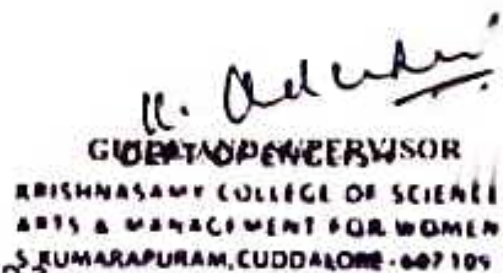 K.
GUIDE AND SUPERVISOR
DEPT OF ENGLISH
KRISHNASAMY COLLEGE OF SCIENCE
ARTS & MANAGEMENT FOR WOMEN
S.KUMARAPURAM, CUDDALORE - 607 109